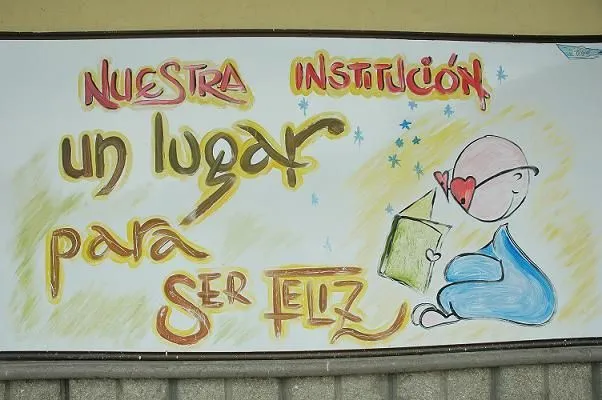 NUESTRA INSTITUCIÓN,
un lugar
para
SER FELIZ